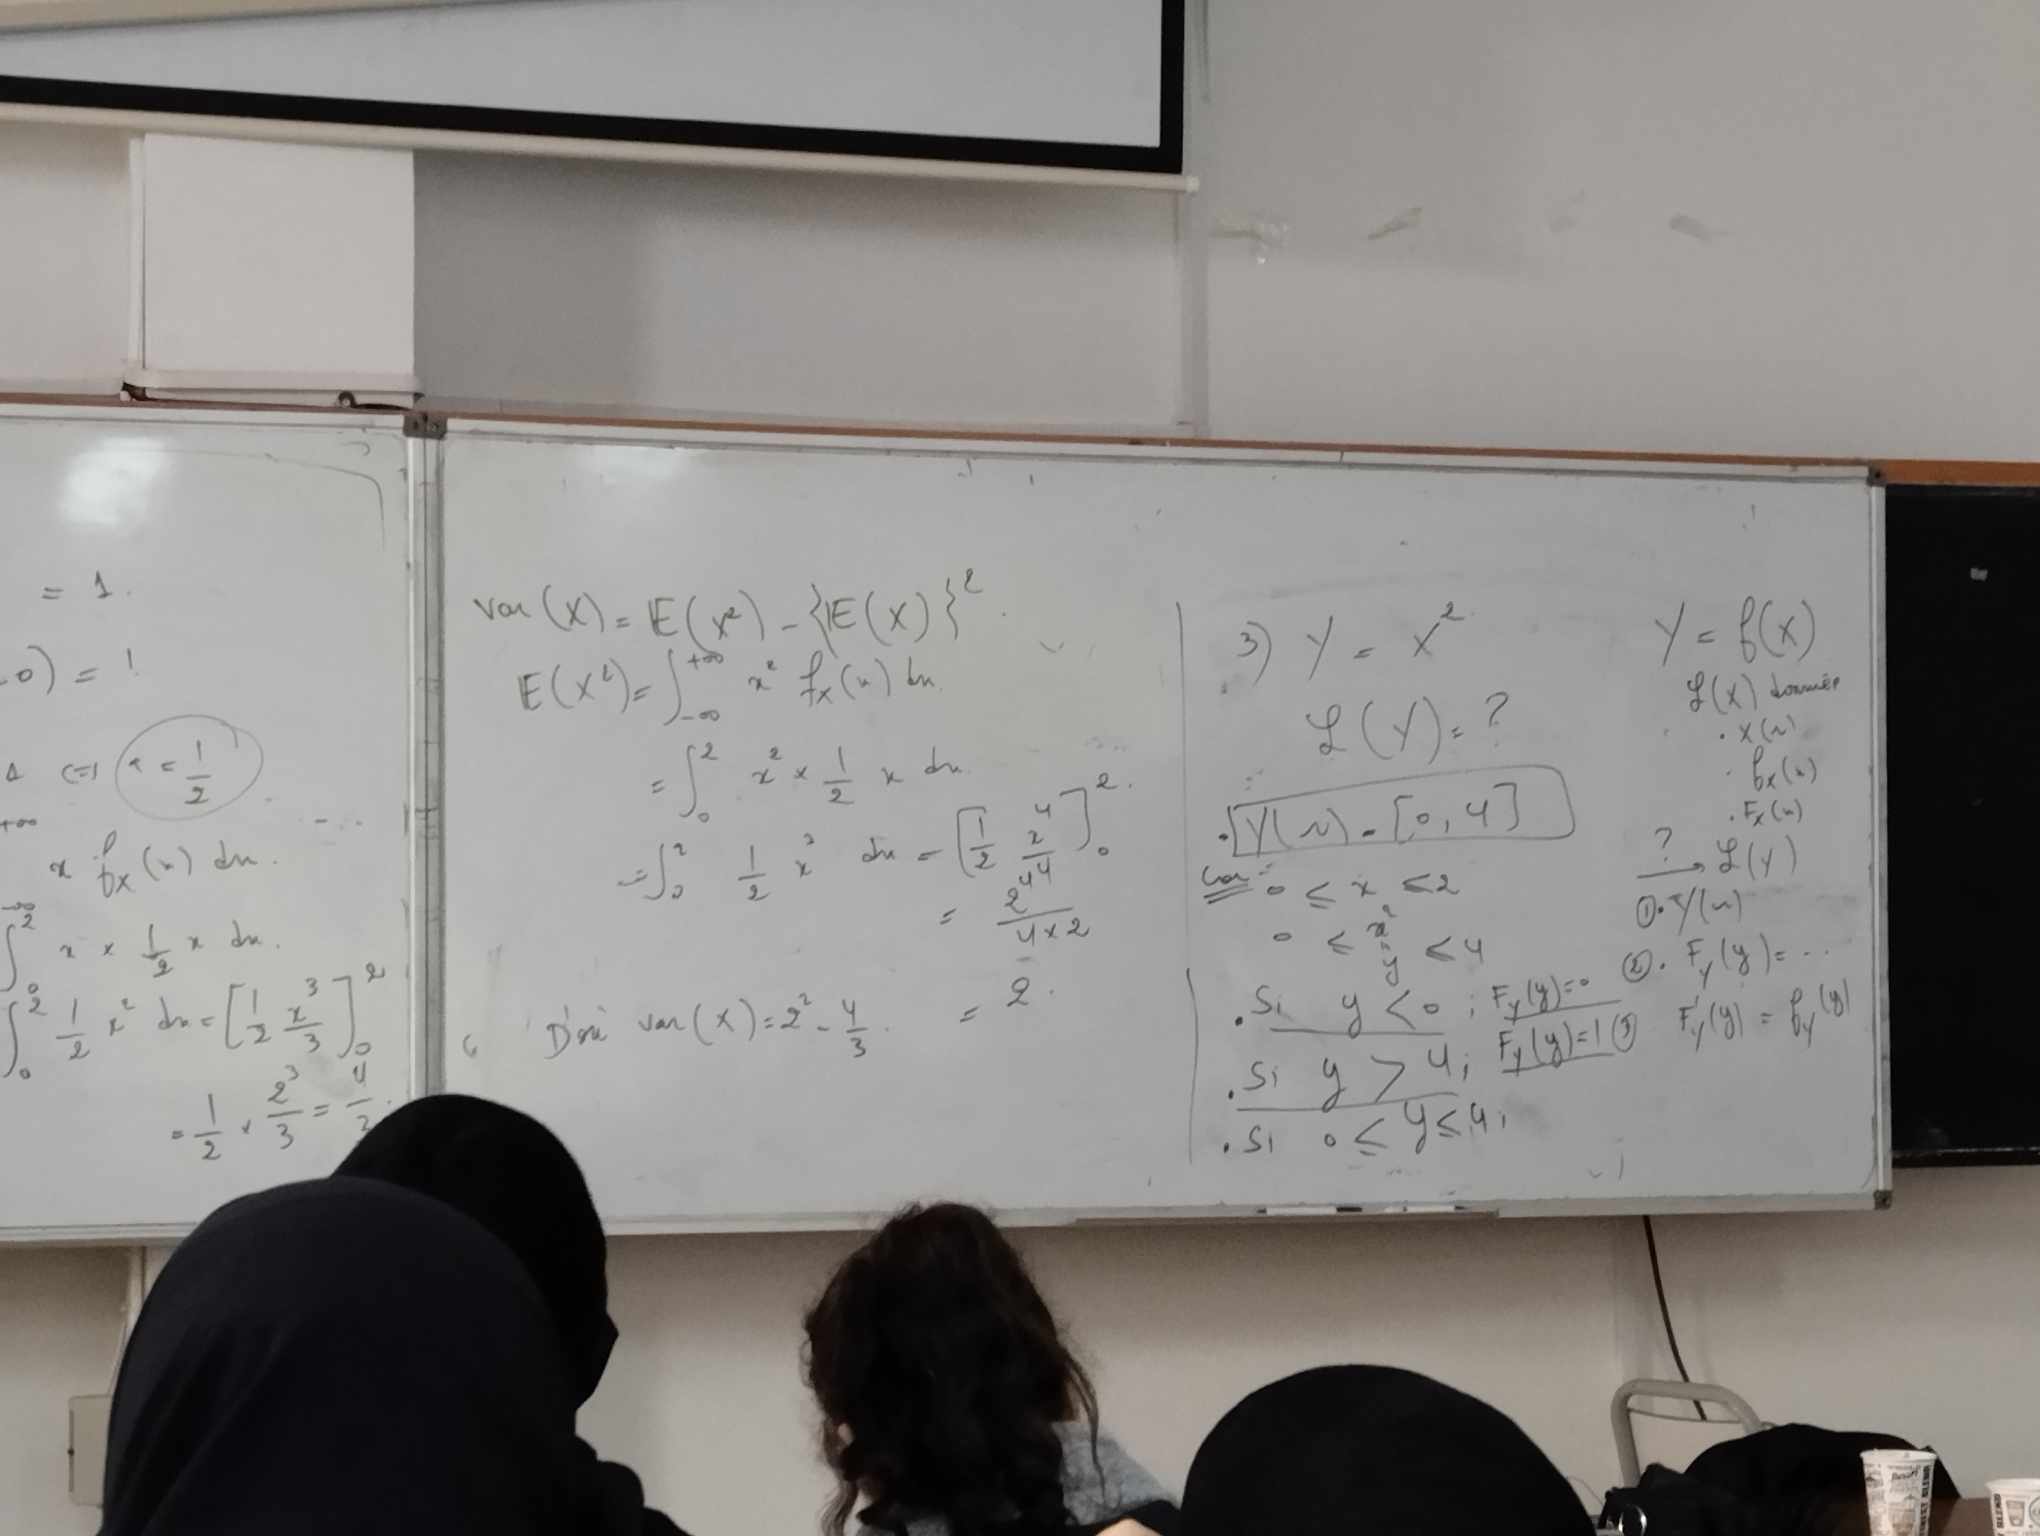 = 1.
-0) = 1
<=> a = 1/2
+∞
x f_X(x) dx.
-∞
∫_0^2 x × 1/2 x dx.
∫_0^2 1/2 x² dx = [1/2 x³/3]_0^2
= 1/2 × 2³/3 = 4/3.
Var(X) = E(X²) - {E(X)}².
E(X²) = ∫_{-∞}^{+∞} x² f_X(x) dx.
= ∫_0^2 x² × 1/2 x dx.
= ∫_0^2 1/2 x³ dx = [1/2 x⁴/4]_0^2.
= 2⁴/(4×2)
= 2.
D'où var(X) = 2² - 4/3.
3) Y = X²
L(Y) = ?
. Y(Ω) = [0, 4]
Car : 0 ≤ x ≤ 2
0 ≤ x² ≤ 4
= y
. Si y < 0 ; F_Y(y) = 0
. Si y > 4 ; F_Y(y) = 1
. Si 0 ≤ y ≤ 4 ;
Y = f(X)
L(X) donnée
. X(Ω)
. f_X(x)
. F_X(x)
? → L(Y)
① . Y(Ω)
② . F_Y(y) = ...
③ F'_Y(y) = f_Y(y)